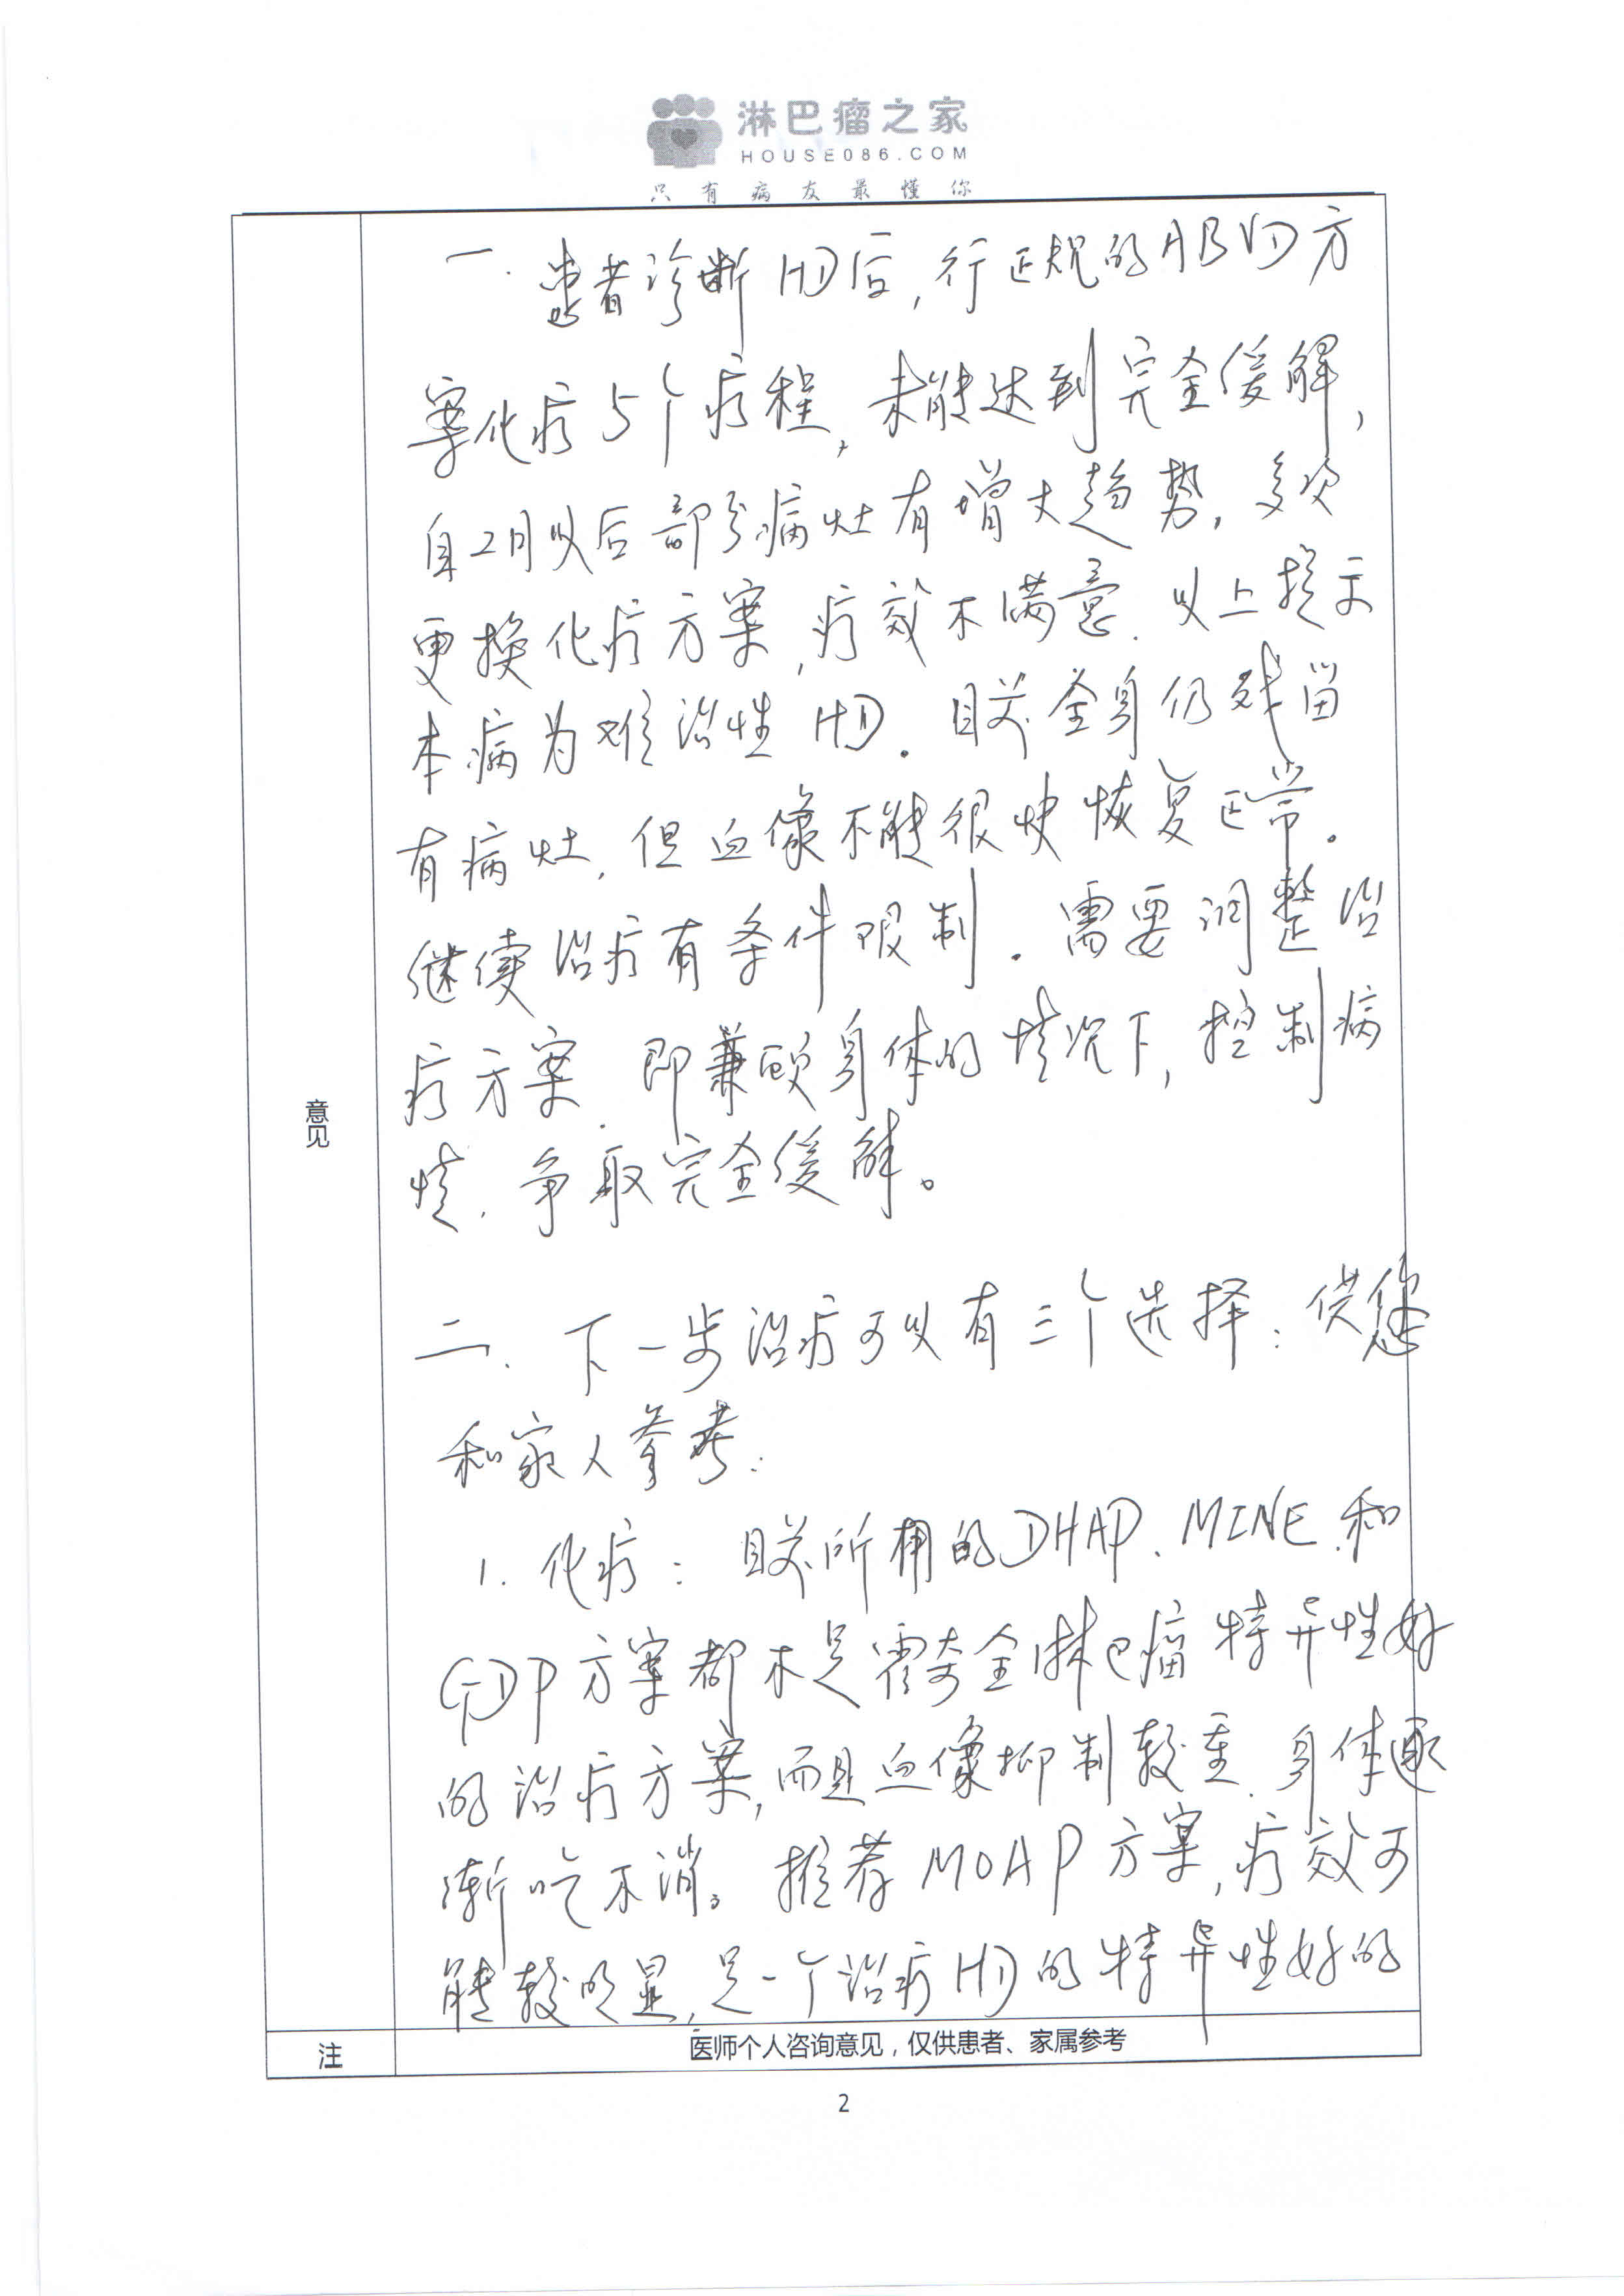 淋巴瘤之家
HOUSE086.COM
只有病友最懂你
一. 患者诊断HD后,行正规的ABVD方
案化疗5个疗程,未能达到完全缓解,
自2月以后部分病灶有增大趋势,多次
更换化疗方案,疗效不满意.以上提示
本病为难治性HD.目前全身仍残留
有病灶,但血像不能很快恢复正常.
继续治疗有条件限制.需要调整治
疗方案.即兼顾身体的情况下,控制病
情.争取完全缓解。
意见
二. 下一步治疗可以有三个选择:供您
和家人参考:
1. 化疗:目前所用的DHAP.MINE.和
GDP方案都不是霍奇金淋巴瘤特异性好
的治疗方案,而且血像抑制较重.身体逐
渐吃不消。推荐MOAP方案,疗效可
能较明显,是一个治疗HD的特异性好的
注
医师个人咨询意见，仅供患者、家属参考
2